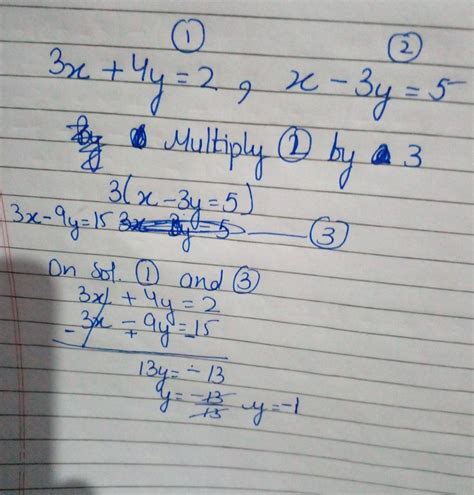 ① ②
3x + 4y = 2 , x - 3y = 5
Multiply ② by 3
3(x - 3y = 5)
3x - 9y = 15 ③
On Sol. ① and ③
3x + 4y = 2
3x - 9y = 15
- + -
13y = -13
y = -13/13 y = -1